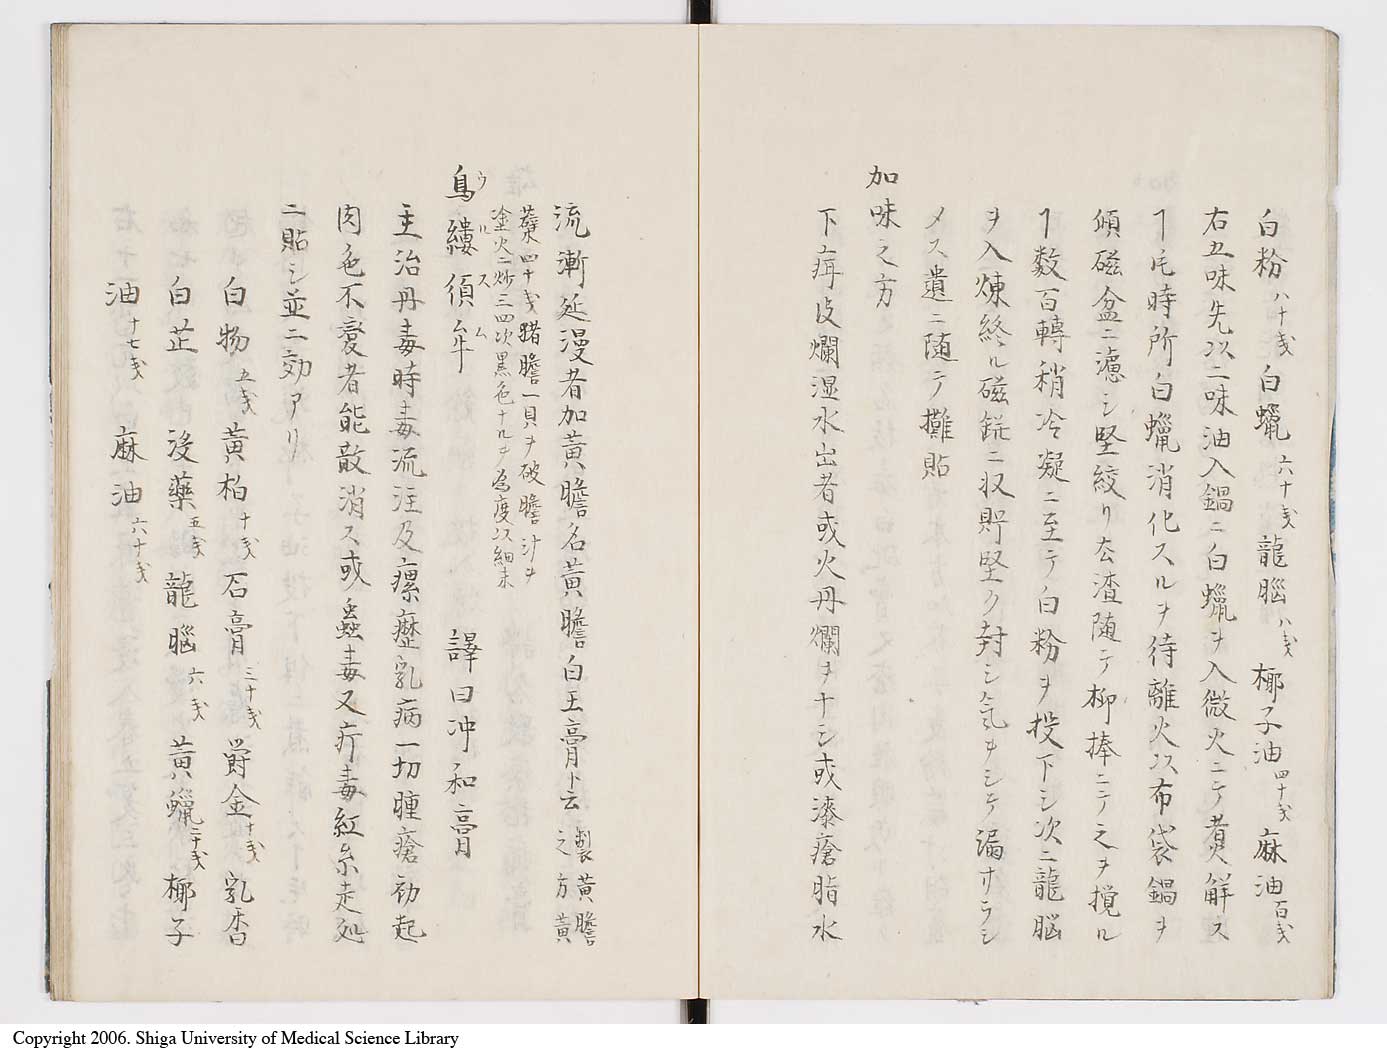 白粉八十戔白蠟六十戔龍腦八戔椰子油四十戔麻油百戔
右五味先以二味油入鍋ニ白蠟ヲ入微火ニテ煮解ス
ヿ毛時所白蠟消化スルヲ待離火以布袋鍋ヲ
傾磁盆ニ濾シ堅絞リ去渣随テ柳捧ニテ之ヲ撹ル
ヿ数百轉稍冷凝ニ至テ白粉ヲ投下シ次ニ龍脳
ヲ入煉終ル磁鋎ニ収貯堅ク封シ気ヲシテ漏サラシ
メス遺ニ随テ攤貼
加味之方
下疳皮爛湿水出者或火丹爛ヲナシ或漆瘡脂水
流漸延漫者加黄膽名黄膽白玉膏ト云製黄膽之方黄
蘗四十戔猪膽一貝ヲ破膽汁ヲ
塗火ニ炒三四次黒色ナルヲ為度以細末
烏縷須牟 譯曰冲和膏
ウルスム
主治丹毒時毒流注及瘰癧乳病一切腫瘡初起
肉色不変者能散消ス或蟲毒又疔毒紅糸走処
ニ貼シ並ニ効アリ
白物五戔黄柏十戔石膏三十戔欝金十戔乳香
白芷 没薬五戔龍腦六戔黄蠟二十戔椰子
油十七戔麻油六十戔
Copyright 2006. Shiga University of Medical Science Library